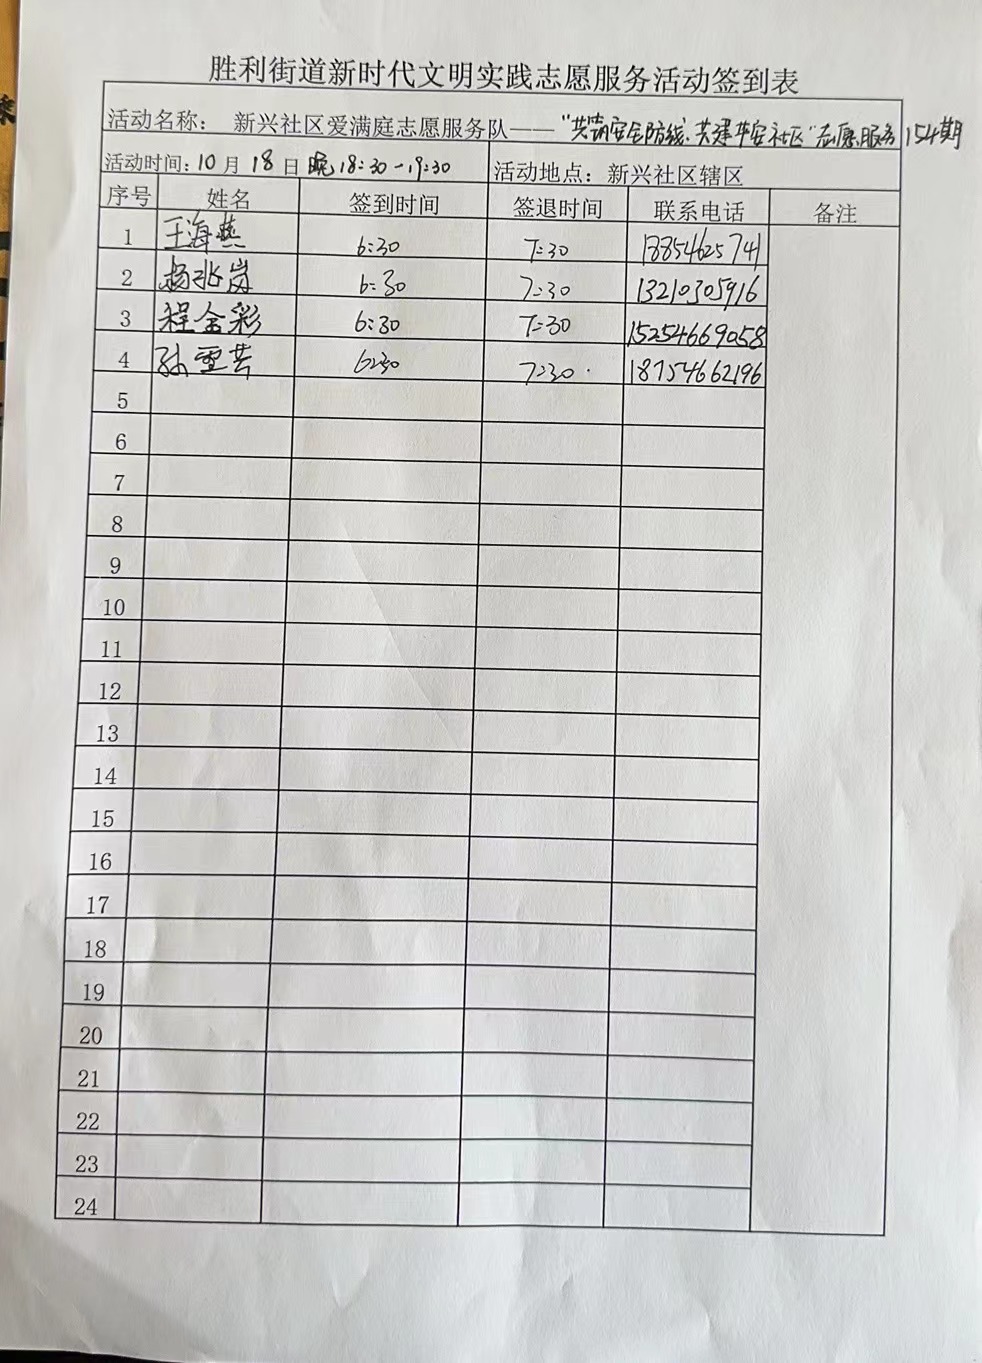 胜利街道新时代文明实践志愿服务活动签到表
活动名称： 新兴社区爱满庭志愿服务队——“共筑安全防线、共建平安社区”志愿服务154期
活动时间：10月18日晚18:30-19:30 活动地点：新兴社区辖区
序号 姓名 签到时间 签退时间 联系电话 备注
1 王海燕 6:30 7:30 18854625741
2 杨兆岚 6:30 7:30 13210305916
3 程金彩 6:30 7:30 15254669058
4 孙雪芸 6:30 7:30 18754662196
5
6
7
8
9
10
11
12
13
14
15
16
17
18
19
20
21
22
23
24